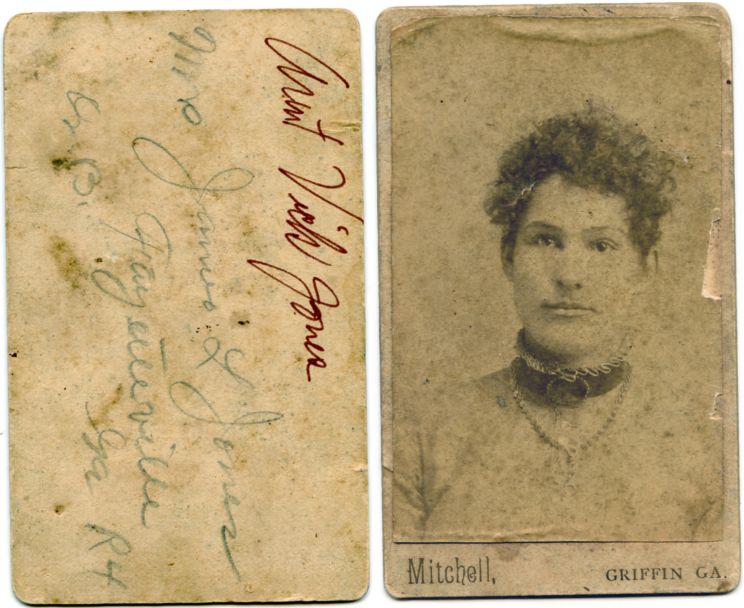 Aunt Vick Jones
Mrs James L Jones
Fayetteville
Ga R4
Mitchell, GRIFFIN GA.